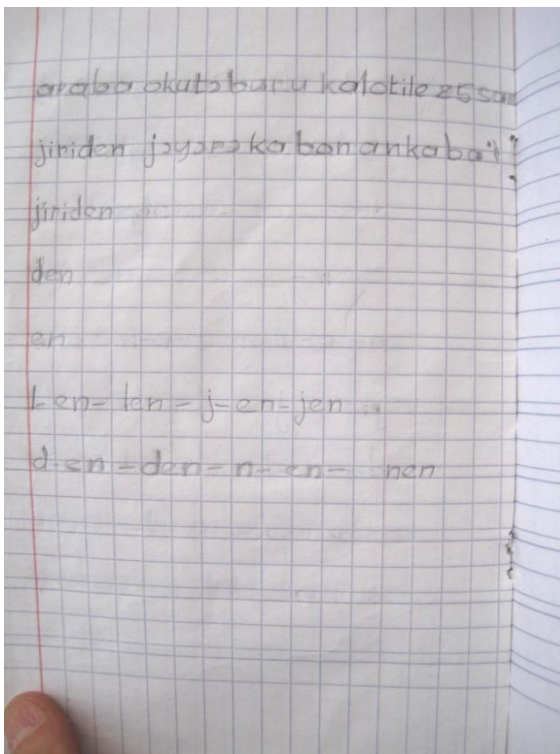 araba okutɔburu kalotile 25 san
jiriden jɔyɔrɔ ka bon an ka ba
jiriden
den
en
l-en- len - j-en-jen
d-en-den-n-en- nen